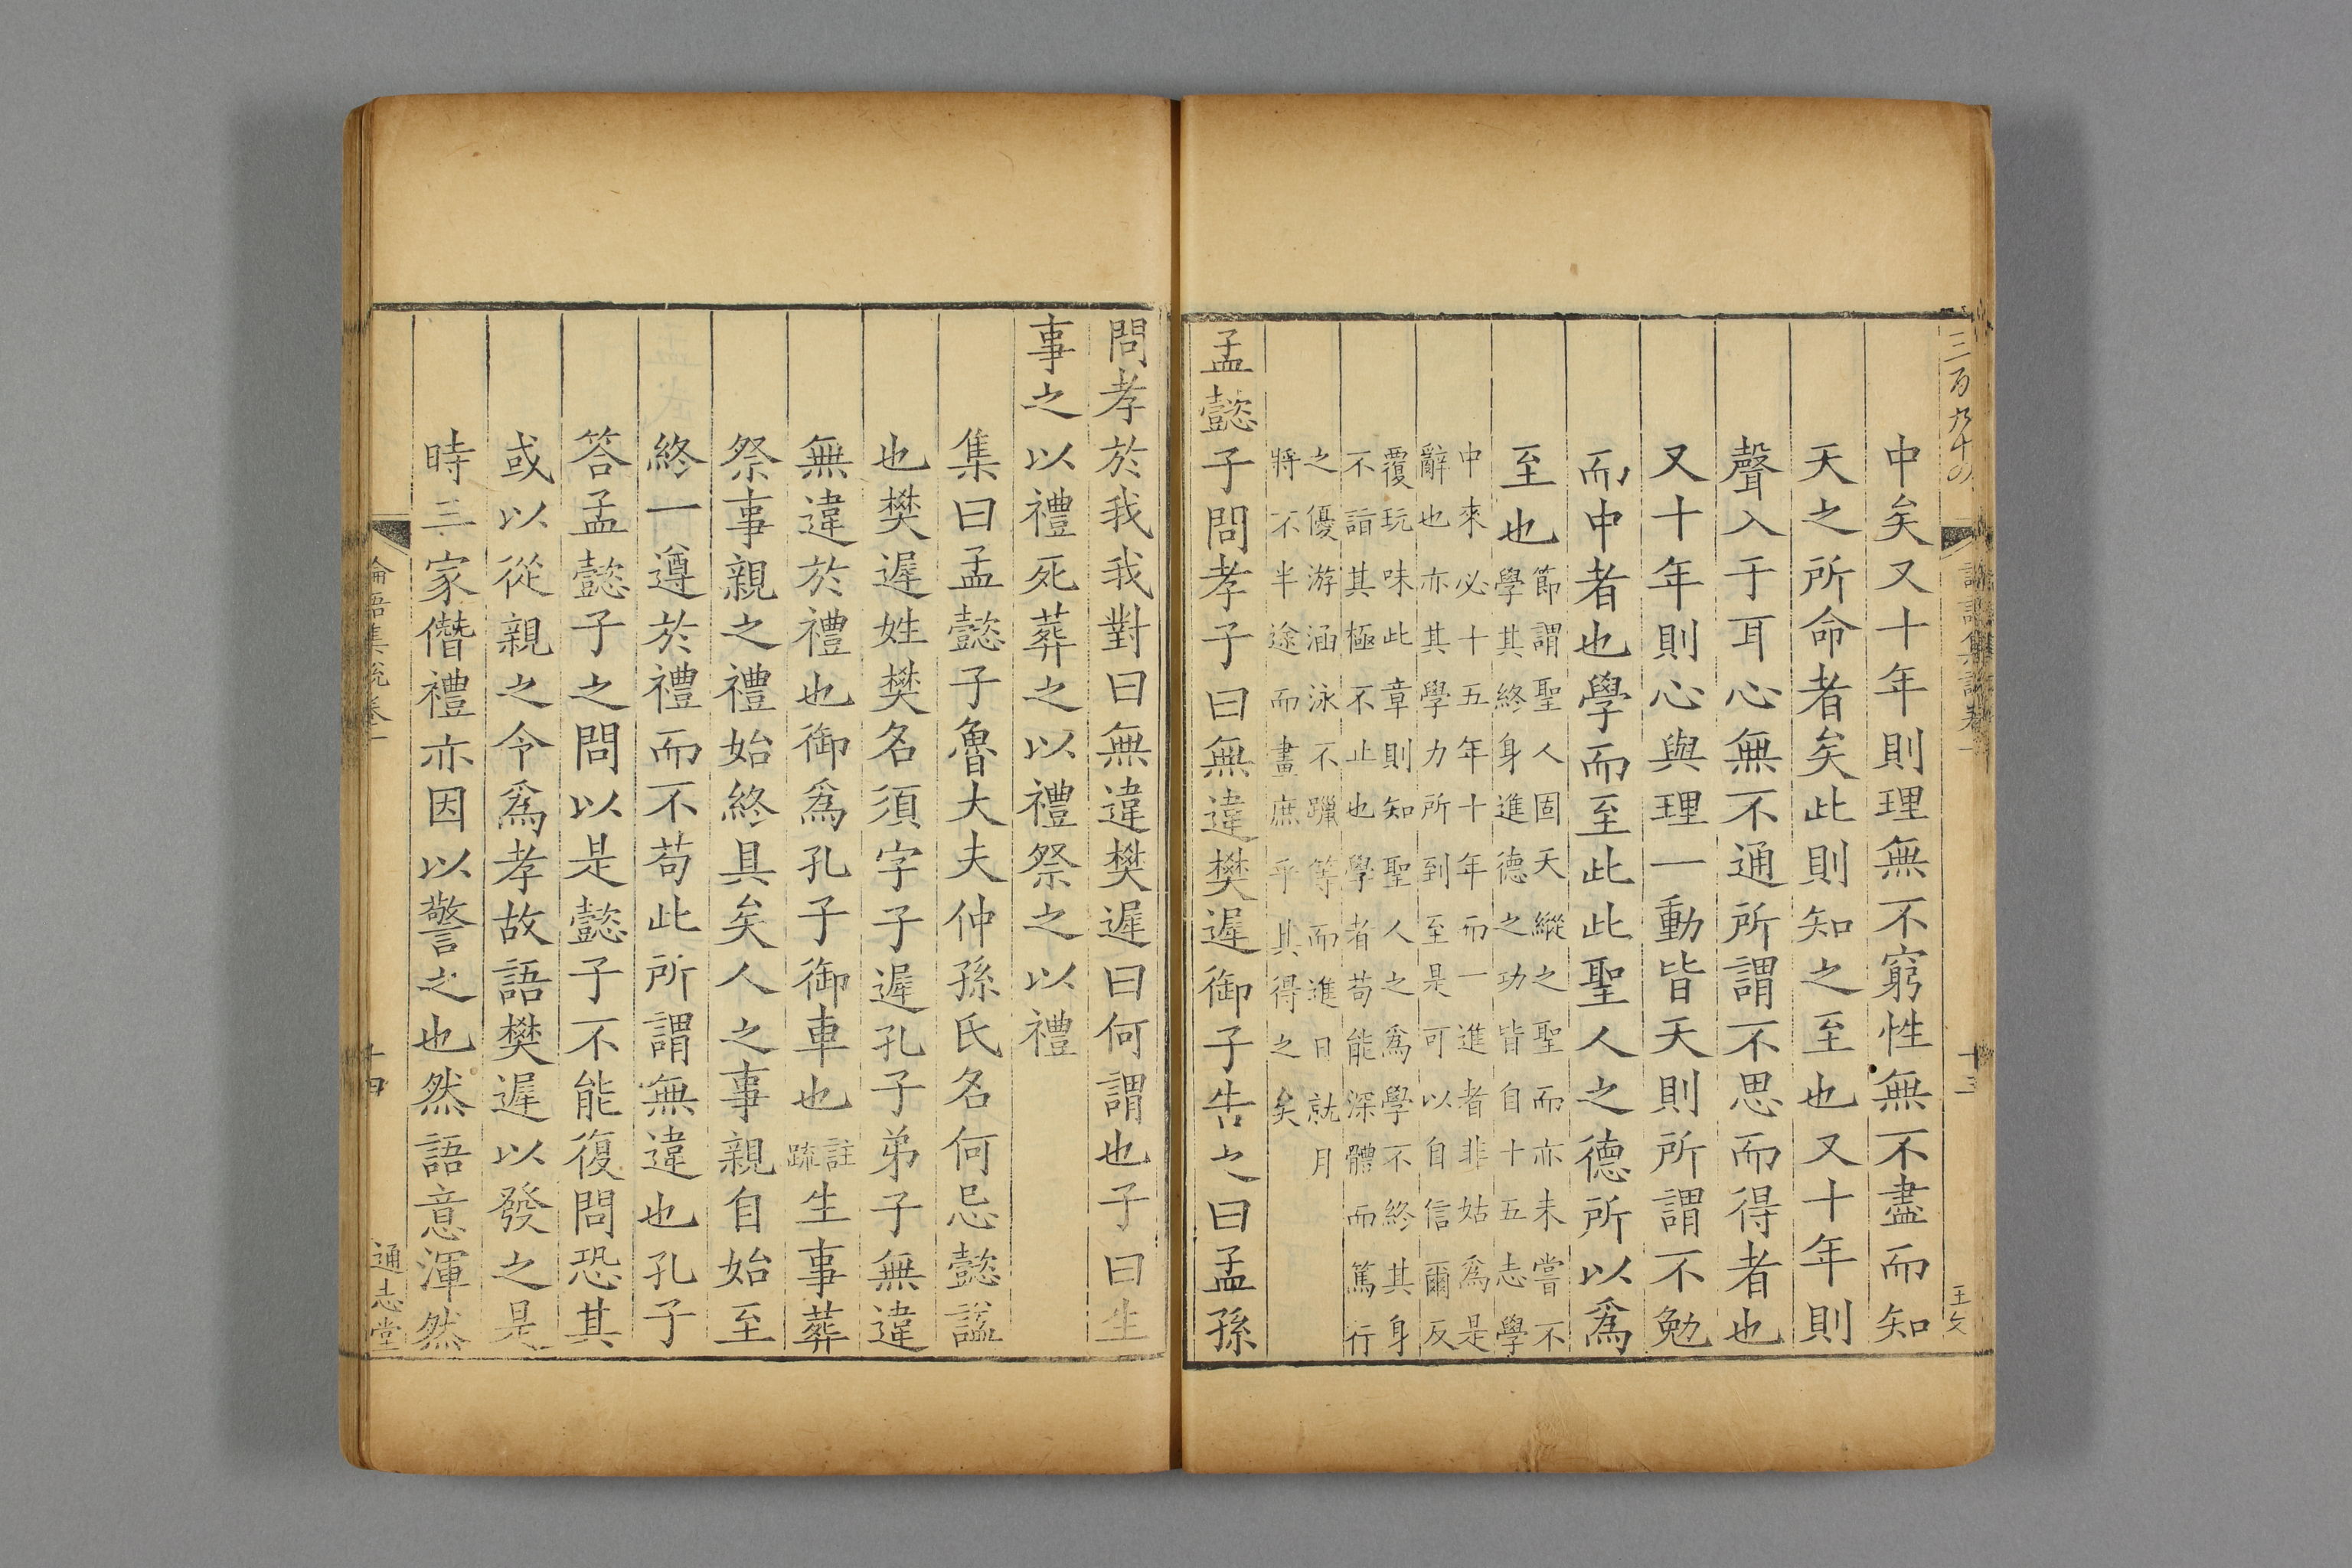 三百九十四
論語集說卷一
十三
王文
中矣又十年則理無不窮性無不盡而知
天之所命者矣此則知之至也又十年則
聲入于耳心無不通所謂不思而得者也
又十年則心與理一動皆天則所謂不勉
而中者也學而至此此聖人之德所以爲
至也
節謂聖人固天縱之聖而亦未嘗不
學其終身進德之功皆自十五志學
中來必十五年十年而一進者非姑爲是
辭也亦其學力所到至是可以自信爾反
覆玩味此章則知聖人之爲學不終其身
不詣其極不止也學者苟能深體而篤行
之優游涵泳不躐等而進日就月
將不半途而畫庶乎其得之矣
孟懿子問孝子曰無違樊遲御子告之曰孟孫
問孝於我我對曰無違樊遲曰何謂也子曰生
事之以禮死葬之以禮祭之以禮
集曰孟懿子魯大夫仲孫氏名何忌懿謚
也樊遲姓樊名須字子遲孔子弟子無違
無違於禮也御爲孔子御車也
註
疏
生事葬
祭事親之禮始終具矣人之事親自始至
終一遵於禮而不苟此所謂無違也孔子
答孟懿子之問以是懿子不能復問恐其
或以從親之令爲孝故語樊遲以發之是
時三家僭禮亦因以警之也然語意渾然
論語集說卷一
十四
通志堂